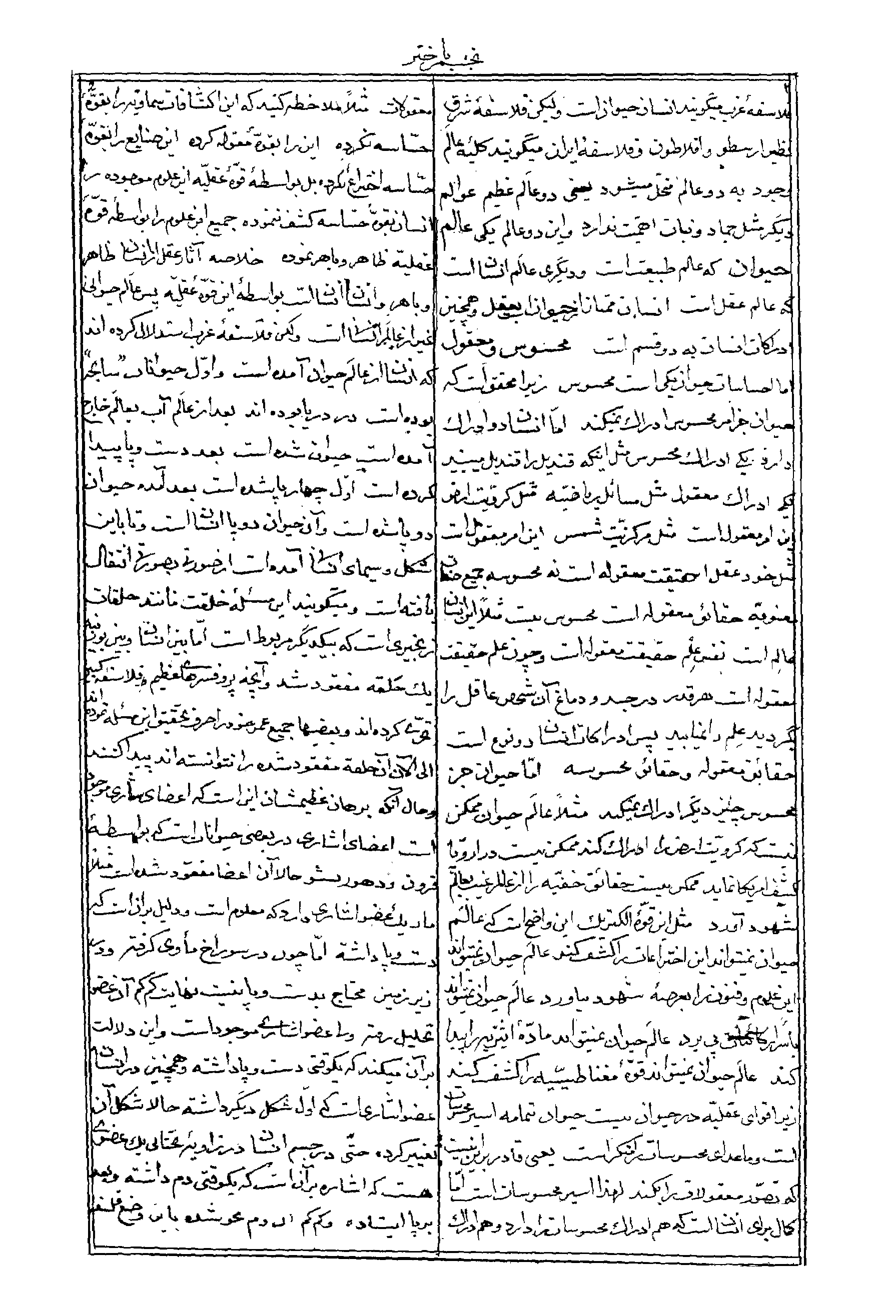 نجم باختر
۲
فلاسفهٔ غرب میگویند انسان حیوان است ولیکن فلاسفهٔ شرق
نظیر ارسطو و افلاطون و فلاسفهٔ ایران میگویند کلیهٔ عالم
وجود به دو عالم منحل میشود یعنی دو عالم عظیم عوالم
دیگر مثل جماد و نبات اهمیت ندارد و این دو عالم یکی عالم
حیوان که عالم طبیعت است و دیگری عالم انسان است
که عالم عقل است انسان ممتاز از حیوان بعقل و همچنین
ادراکات انسان به دو قسم است محسوس و معقول
اما احساسات حیوان یکی است محسوس زیرا محقق است که
حیوان جز امر محسوس ادراک نمیکند اما انسان دو ادراک
دارد یکی ادراک محسوس مثل اینکه قندیل را قندیل میبیند
یکی ادراک معقول مثل مسائل ریاضیه مثل کرویّت ارض
این امر معقول است مثل مرکزیّت شمس این امر معقول است
مثل خود عقل حقیقت معقوله است نه محسوسه جمیع حقائق
معنویه حقائق معقوله است محسوس نیست مثلاً این انسان
عالم است نفس علم حقیقت معقوله است و چون علم حقیقت
معقوله است هر قدر در جسد و دماغ آن شخص عاقل را
بگردید علم را نمیابید پس ادراکات انسان دو نوع است
حقائق معقوله و حقائق محسوسه امّا حیوان جز
محسوس چیز دیگر ادراک نمیکند مثلاً عالم حیوان ممکن
نیست که کرویّت ارض را ادراک کند ممکن نیست در اروپا
کشف امریکا نماید ممکن نیست حقائق خفیّه را از عالم غیب بعالم
شهود آورد مثل این قوّهٔ الکتریک این واضح است که عالم
حیوان نمیتواند این اختراعات را کشف کند عالم حیوان نمیتواند
این علوم و فنون را بعرصهٔ شهود بیاورد عالم حیوان نمیتواند
باسرار کائنات پی برد عالم حیوان نمیتواند مادّهٔ اثیریه را پیدا
کند عالم حیوان نمیتواند قوّهٔ مغناطیسیّه را کشف کند
زیرا قوای عقلیّه در حیوان نیست حیوان بتمامه اسیر محسوسات
است و ماعدای محسوسات را منکر است یعنی قادر بر این نیست
که تصوّر معقولات را بکند لهذا اسیر محسوسات است امّا
کمال برای انسان است که هم ادراک محسوسات را دارد و هم ادراک
معقولات مثلاً ملاحظه کنید که این اکتشافات سماویّه را بقوّهٔ
حسّاسه نکرده این را بقوّهٔ معقوله کرده این صنایع را بقوّه
حسّاسه اختراع نکرده بل بواسطهٔ قوّهٔ عقلیّه این علوم موجوده را
انسان بقوّهٔ حسّاسه کشف ننموده جمیع این علوم را بواسطهٔ قوّهٔ
عقلیّه ظاهر و باهر نموده خلاصه آثار عقل از انسان ظاهر
و باهر و انسان انسان است بواسطهٔ این قوّهٔ عقلیّه پس عالم حیوانی
غیر از عالم انسان است ولکن فلاسفهٔ غرب استدلال کرده اند
که انسان از عالم حیوان آمده است و اوّل حیوانات "سابحه"
بوده است در دریا بوده اند بعد از عالم آب بعالم خارج
آمده است حیوان شده است بعد دست و پا پیدا
کرده است اوّل چهار پا شده است بعد آمده حیوان
دو پا شده است و آن حیوان دو پا انسان است و تا باین
شکل و سیمای انسان آمده است از صورتی بصورتی انتقال
یافته است و میگویند این مسئلهٔ خلقت مانند حلقات
زنجیری است که بیکدیگر مربوط است امّا بین انسان و بین بوزینه
یک حلقه مفقود شد و آنچه پروفسرهای عظیم و فلاسفهٔ کبیر
تحرّی کرده اند و بعضیها جمیع عمر خود را صرف تحقیق این مسئله نموده اند
الی الآن آن حلقهٔ مفقود شده را نتوانسته اند پیدا کنند
و حال آنکه برهان عظیمشان این است که اعضای اشاری موجود
است اعضای اشاری در بعضی حیوانات است که بواسطهٔ
قرون و دهور بسر حالا آن اعضا مفقود شده است مثلاً
مار یک عضو اشاری دارد که معلوم است و دلیل بر آن است که
دست و پا داشته امّا چون در سوراخ مأوی گرفته و در
زیر زمین محتاج بدست و پا نیست نهایت کم کم آن عضو
تحلیل رفته ولی عضو اشاری موجود است و این دلالت
بر آن میکند که یکوقتی دست و پا داشته و همچنین در انسان
عضو اشاری است که اوّل شکل دیگر داشته حالا شکل آن
تغییر کرده حتّی در جسم انسان در زاویهٔ تحتانی یک عضوی
هست که اشاره بر آن است که یکوقتی دم داشته و بعد
برپا ایستاده و کم کم آن دم محو شده باین وضع فلسفه